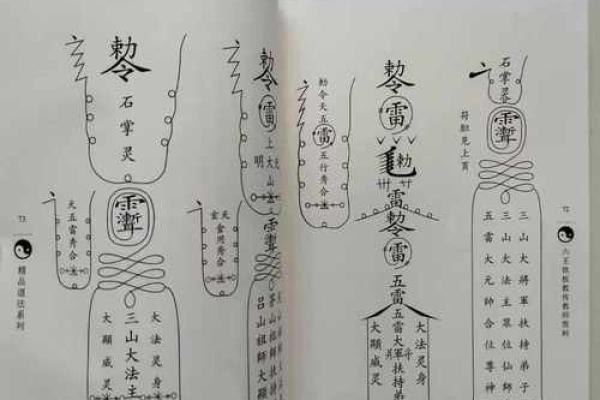 勅令
石掌灵
大顯威灵
三山大法主
大法灵身
天五雷秀合
73
精品道法系列
勅令
雷
上
明大
山
金周秀合
吕山祖師大顯
茅山祖師扶持
勅令天五
雷
五行秀合
勅令
雷
勅
雷
勅令
雷
五雷
五雷大軍扶持弟
大顯威灵
大法灵身
石掌灵
符胆見上頁
三山大將軍扶持弟子
三山大法主眾位仙師
五雷大元帥合位尊神
72
六壬铁板教传教师资料